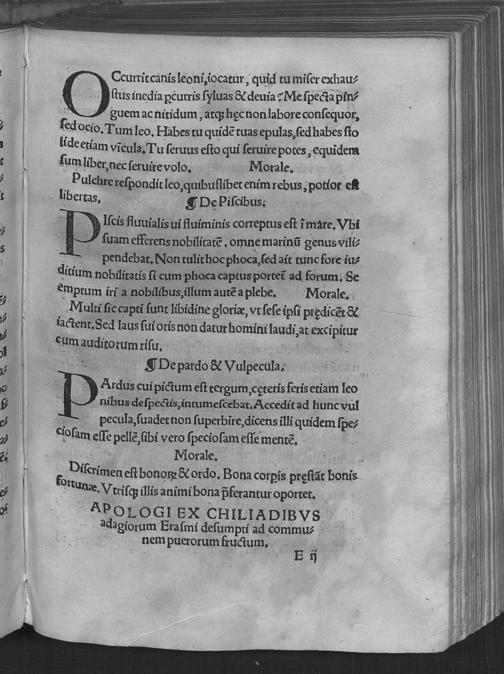 OCcurrit canis leoni, iocatur, quid tu miser exhau-
stus inedia ꝑcurris syluas & deuia? Me specta pin-
guem ac nitidum, atqꝫ hęc non labore consequor,
sed ocio. Tum leo. Habes tu quidē tuas epulas, sed habes sto
lide etiam vīcula. Tu seruus esto qui seruire potes, equidem
sum liber, nec seruire volo. Morale.
Pulchre respondit leo, quibuslibet enim rebus, potior est
libertas. ¶ De Piscibus.
PIscis fluuialis vi fluminis correptus est ī mare. Vbi
suam efferens nobilitatē, omne marinū genus vili-
pendebat. Non tulit hoc phoca, sed ait tunc fore iu-
ditium nobilitatis si cum phoca captus portet̄ ad forum. Se
emptum iri a nobilibus, illum autē a plebe. Morale.
Multi sic capti sunt libidine gloriæ, vt sese ipsi prędicēt &
iactent. Sed laus sui oris non datur homini laudi, at excipitur
cum auditorum risu.
¶ De pardo & Vulpecula.
PArdus cui pictum est tergum, cęteris feris etiam leo
nibus despectis, intumescebat. Accedit ad hunc vul
pecula, suadet non superbire, dicens illi quidem spe-
ciosam esse pellē, sibi vero speciosam esse mentē.
Morale.
Discrimen est bonoꝝ & ordo. Bona corꝑis pręstāt bonis
fortunæ. Vtrisqꝫ illis animi bona p̄ferantur oportet.
APOLOGI EX CHILIADIBVS
adagiorum Erasmi desumpti ad commu-
nem puerorum fructum.
E ij